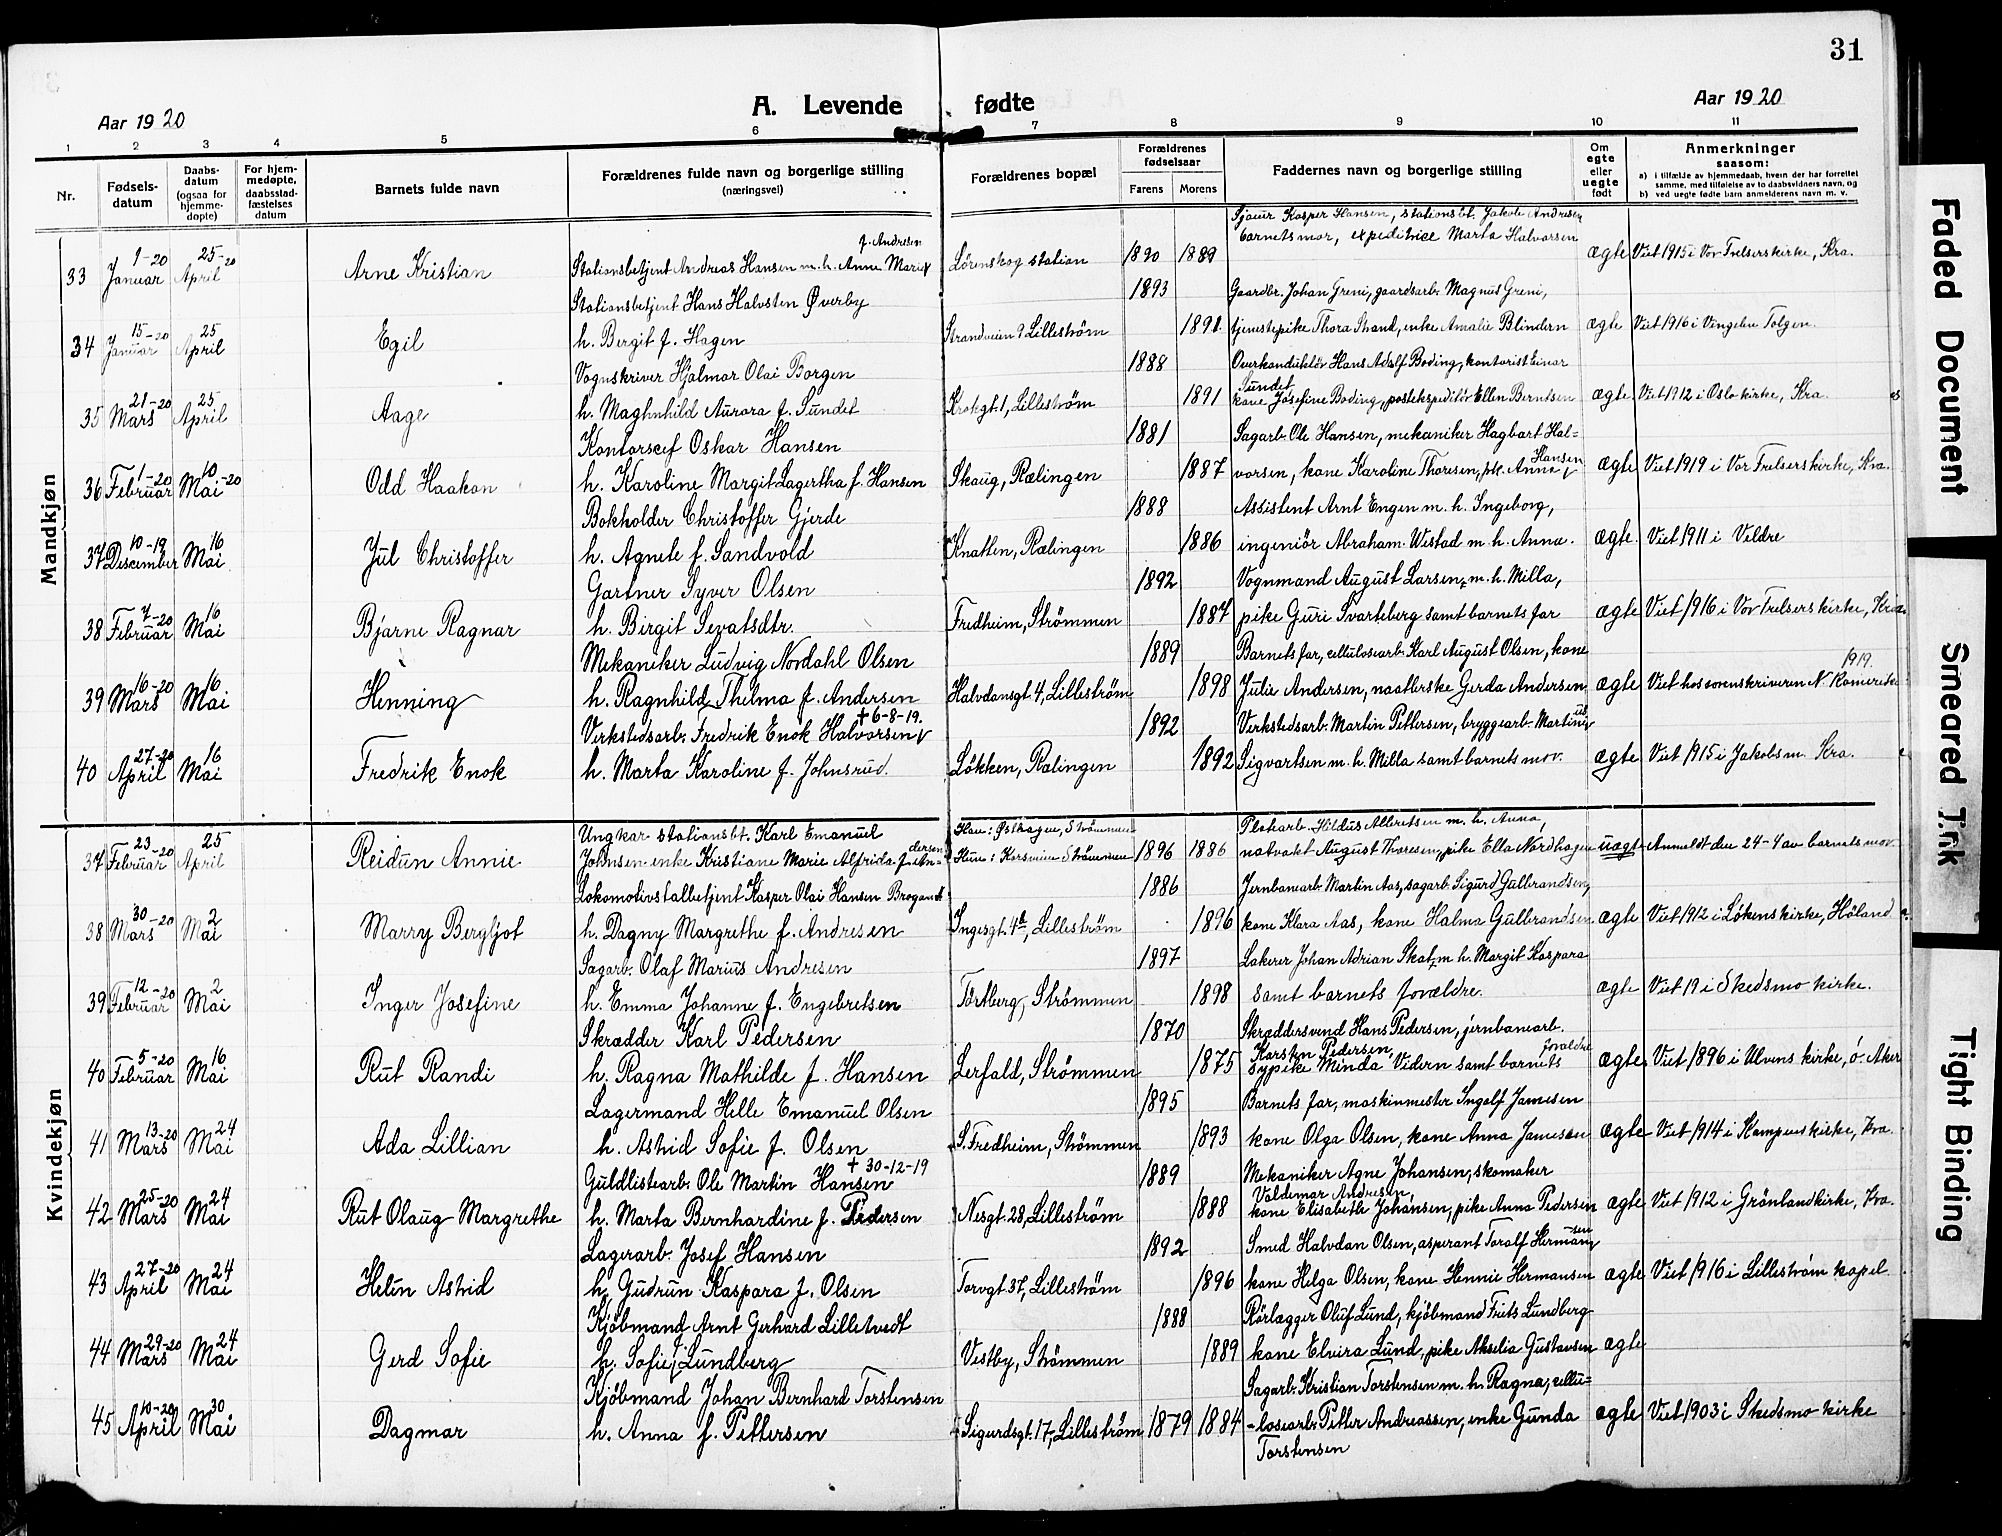 31
Aar 1920
A. Levende fødte
Aar 1920
1 2 3 4 5 6 7 8 9 10 11
Nr.
Fødsels-
datum
Daabs-
datum
(ogsaa for
hjemme-
døpte)
For hjem-
medøpte,
daabsstad-
fæstelses
datum
Barnets fulde navn
Forældrenes fulde navn og borgerlige stilling
(næringsvei)
Forældrenes bopæl
Forældrenes
fødselsaar
Farens Morens
Faddernes navn og borgerlige stilling
Om
egte
eller
uegte
født
Anmerkninger
saasom:
a) i tilfælde av hjemmedaab, hvem der har forrettet
samme, med tilføielse av to daabsvidners navn, og
b) ved uegte fødte barn anmelderens navn m. v.
Mandkjøn
33 1-20 Januar 25-20 April Arne Kristian
Stationsbetjent Andreas Hansen m. h. Anne Marie f. Andresen
Lørenskog station 1890 1889
Sjauer Kasper Hansen, stationsbt. Jakob Andresen
barnets mor, expeditrice Marta Halvorsen
ægte Viet 1915 i Vor Frelsers kirke, Kra.
34 15-20 Januar 25 April Egil
Stationsbetjent Hans Halvsten Øverby
h. Bergit f. Hagen
Strandveien 9 Lilleström 1893 1891.
Gaardbr. Johan Greni, gaardsarb. Magnus Greni,
tjenestepike Thora Strand, enke Amalie Blindern
ægte Viet 1916 i Vingelen Tolgen.
35 21-20 Mars 25 April Aage
Vognskriver Hjalmar Olai Borgen
h. Maghnhild Aurora f. Sundet
Krokgt. 1, Lilleström 1888 1891
Overkonduktör Hans Adolf Boding, kontorist Einar
Sundet,
kone Josefine Boding, postekspeditör Ellen Berntsen
ægte Viet 1912 i Oslo kirke, Kra.
36 1-20 Februar 10-20 Mai Odd Haakon
Kontorscef Oskar Hansen
h. Karoline Margit Lagertha f. Hansen
Skaug, Rælingen 1881 1887
Sagarb. Ole Hansen, mekaniker Hagbart Hal=
vorsen, kone Karoline Thoresen, pk. Anna Hansen
ægte Viet 1919 i Vor Frelsers kirke, Kra.
37 10-19 Descember 16 Mai Jul Christoffer
Bokholder Christoffer Gjerde
h. Agnete f. Sandvold
Knatten, Rælingen 1888 1886
Assistent Arnt Engen m. h. Ingeborg,
ingeniör Abraham Wistad m. h. Anna.
ægte Viet 1911 i Veldre
38 7-20 Februar 16 Mai Bjarne Ragnar
Gartner Syver Olsen
h. Birgit Sevatsdtr.
Fredheim, Strömmen 1892 1887
Vognmand August Larsen, m. h. Milla,
pike Guri Svarteberg samt barnets far
ægte Viet 1916 i Vor Frelsers kirke, Kra.
39 16-20 Mars 16 Mai Henning
Mekaniker Ludvig Nordahl Olsen
h. Ragnhild Thelma f. Andersen
Halvdansgt. 4, Lilleström 1889 1898
Barnets far, cellulosearb. Karl August Olsen, kone
Julie Andersen, naatlerske Gerda Andersen
ægte Viet hos sorenskriveren N. Romerike 1919.
40 27-20 April 16 Mai Fredrik Enok
Verkstedsarb. Fredrik Enok Halvorsen † 6-8-19.
h. Marta Karoline f. Johnsrud.
Lökken, Rælingen 1892 1892
Verkstedsarb. Martin Pettersen, bryggearb. Martinius
Sigvartsen m. h. Milla samt barnets mor.
ægte Viet 1915 i Jakobs m. Kra.
Kvindekjøn
37 23-20 Februar 25 April Reidun Annie
Ungkar stationsbt. Karl Emanuel
Johnsen enke Kristiane Marie Alfrida f. An-
dersen
Han: Østhagen, Strömmen
Hun: Korsveien Strömmen 1896 1886
Platarb. Hildus Albretsen m. h. Anna,
natvakt August Thoresen, pike Ella Nordhagen
uægte Anmeldt den 24-4 av barnets mor
38 30-20 Mars 2 Mai Marry Bergljot
Lokomotivstalbetjent Kasper Olai Hansen Brogandt
h. Dagny Margrethe f. Andresen
Ingesgt. 4b, Lilleström 1886 1896
Jernbanearb. Martin Aas, sagarb. Sigurd Gulbrandsen,
kone Klara Aas, kone Halma Gulbrandsen
ægte Viet 1912 i Løkens kirke, Höland
39 12-20 Februar 2 Mai Inger Josefine
Sagarb. Olaf Marius Andresen
h. Emma Johanne f. Engebretsen
Törtberg, Strömmen 1897 1898
Lakerer Johan Adrian Skat, m. h. Margit Kaspara
samt barnets forældre.
ægte Viet 19 i Skedsmo kirke.
40 5-20 Februar 16 Mai Rut Randi
Skrædder Karl Pedersen
h. Ragna Mathilde f. Hansen
Lerfald, Strömmen 1870 1875
Skræddersvend Hans Pedersen, jernbanearb.
Karsten Pedersen,
sypike Minda Vidern samt barnets forældre
ægte Viet 1896 i Ulvens kirke, ö. Aker
41 13-20 Mars 24 Mai Ada Lillian
Lagermand Helle Emanuel Olsen
h. Astrid Sofie f. Olsen
S. Fredheim, Strömmen 1895 1893
Barnets far, maskinmester Ingolf Jamesen
kone Olga Olsen, kone Anna Jamesen
ægte Viet 1914 i Kampens kirke, Kra.
42 25-20 Mars 24 Mai Rut Olaug Margrethe
Guldlistearb. Ole Martin Hansen † 30-12-19
h. Marta Bernhardine f. Pedersen
Nesgt. 28, Lilleström 1889 1888
Mekaniker Agne Johansen, skomaker
Valdemar Andresen,
kone Elisabeth Johansen, pike Anna Pedersen
ægte Viet 1912 i Grönland kirke, Kra.
43 27-20 April 24 Mai Helen Astrid
Lagerarb. Josef Hansen
h. Gudrun Kaspara f. Olsen
Torvgt. 37, Lilleström 1892 1896
Smed Halvdan Olsen, asperant Toralf Hermansen
kone Helga Olsen, kone Hennie Hermansen
ægte Viet 1916 i Lilleström kapel
44 29-20 Mars 24 Mai Gerd Sofie
Kjöbmand Arnt Gerhard Lilletvedt
h. Sofie f. Lundberg
Vestby, Strömmen 1888 1889
Rörlægger Oluf Lund, kjöbmand Frits Lundberg
kone Elvira Lund, pike Akselia Gustavsen
ægte
45 10-20 April 30 Mai Dagmar
Kjöbmand Johan Bernhard Torstensen
h. Anna f. Pettersen
Sigurdsgt. 17, Lilleström 1879 1884
Sagarb. Kristian Torstensen m. h. Ragna, cellu=
-losearb. Petter Andreassen, enke Gunda
Torstensen
ægte Viet 1903 i Skedsmo kirke
Faded Document
Smeared Ink
Tight Binding